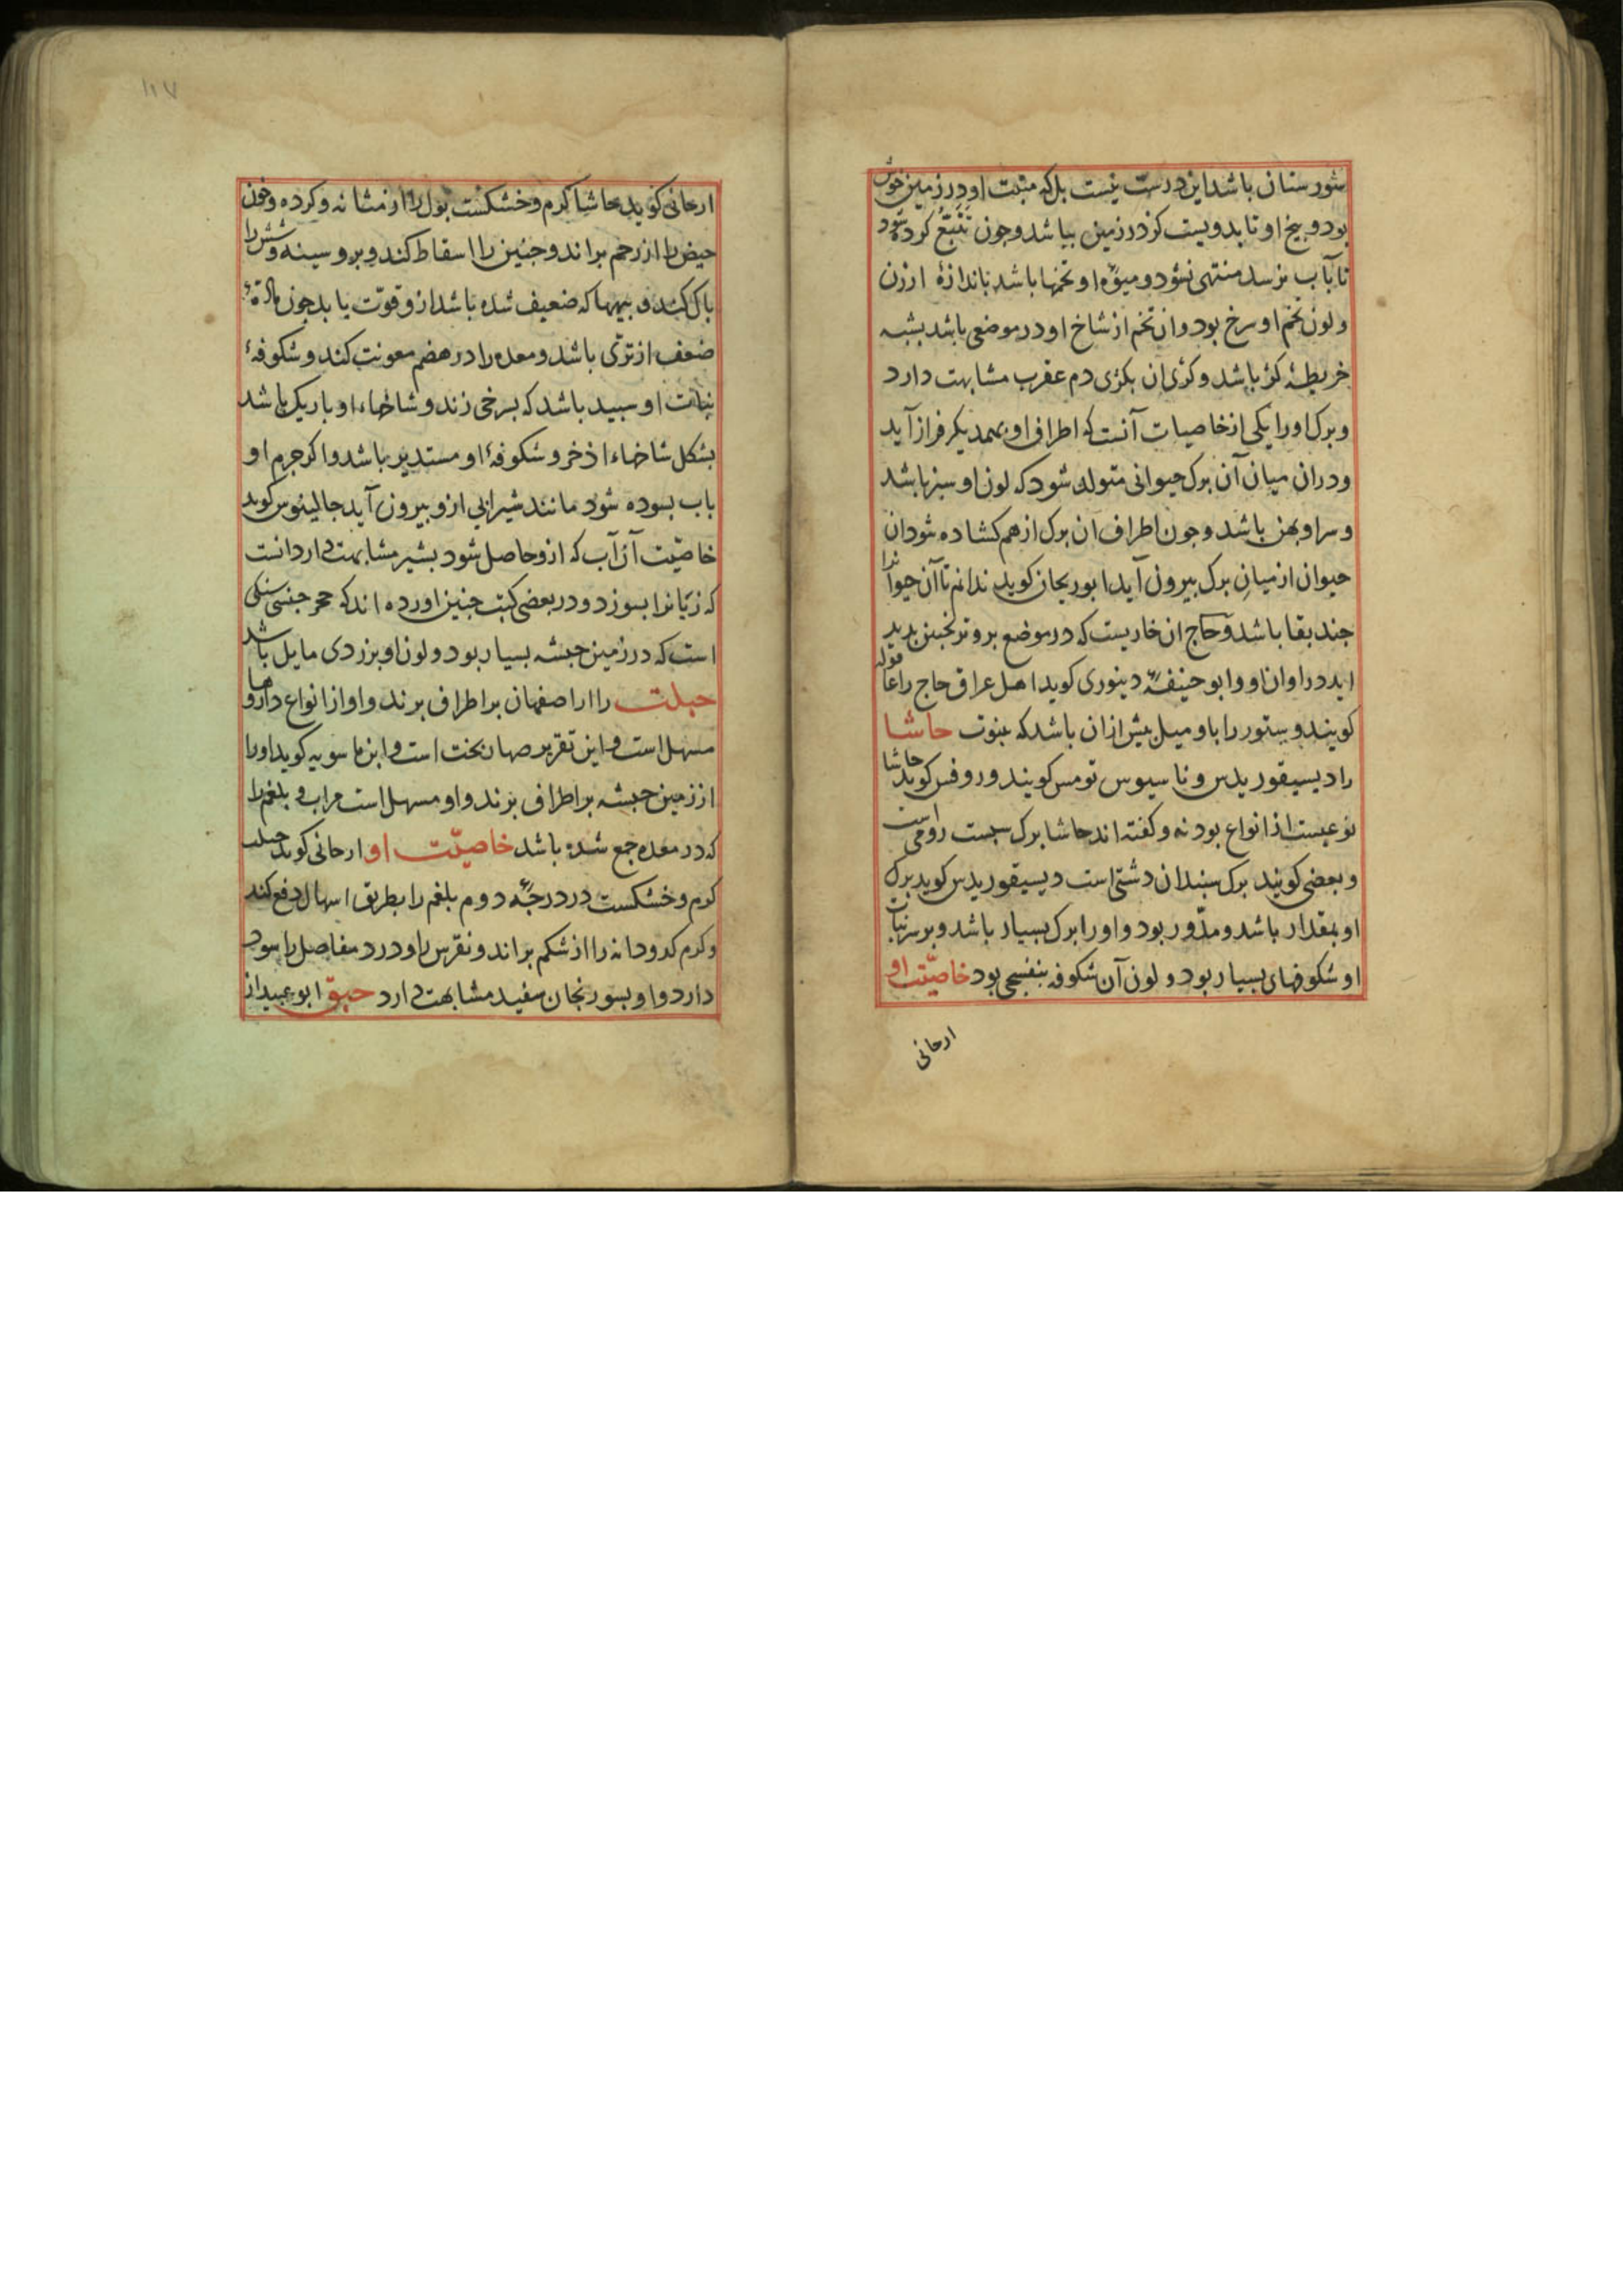 شورستان باشد این درست نیست بلکه منبت او در زمین خوش
بود و بیخ او تا بدویست کز در زمین بباشد و جون تتبع کرده شود
تا بآب نرسد منتهی نشود و میوهٔ او تخمها باشد باندازهٔ ارزن
و لون تخم او سرخ بود و ان تخم از شاخ او در موضعی باشد بشبه
خریطهٔ کژ باشد و کژی ان بکژی دم عقرب مشابهت دارد
و برک او را یکی از خاصیات آنست که اطراف او بهمدیکر فراز آید
و در ان میان آن برک حیوانی متولد شود که لون او سبز باشد
و سر او بهن باشد و جون اطراف ان برک از هم کشاده شود ان
حیوان از میان برک بیرون آید ابوریحان کوید ندانم تا آن حیوانرا
جند بقا باشد و حاج ان خاریست که در موضع برو ترنجبین بدید
اید در اوان او و ابو حنیفهٔ دینوری کوید اهل عراق حاج را عاقوله
کویند و ستور را باو میل بیش از ان باشد که بنوت حاشا
را دیسیقوریدس و ناسیوس تومس کویند و روفس کوید حاشا
نوعیست از انواع بودنه و کفته اند حاشا برک سبست رومی است
و بعضی کویند برک سبندان دشتی است دیسیقوریدس کوید برک
او بمقدار باشد و مدور بود و او را برک بسیار باشد و بر سر نبات
او شکوفهای بسیار بود و لون آن شکوفه بنفسجی بود خاصیّت او
ارحانی
۱۱۷
ارحانی کوید حاشا کرم و خشکست بول را از مثانه و کرده و خون
حیض را از رحم براند و جنین را اسقاط کند و بر و سینه و شش را
باک کند و بیهها که ضعیف شده باشد ازو قوّت یابد جون مادّهٔ
ضعف از ترّی باشد و معده را در هضم معونت کند و شکوفهٔ
نبات او سبید باشد که بسرخی زند و شاخهاء او باریک باشد
بشکل شاخهاء اذخر و شکوفهٔ او مستدیر باشد و اکر جرم او
باب بسوده شود مانند شیرابی ازو بیرون آید جالینوس کوید
خاصیّت آن آب که ازو حاصل شود بشیر مشابهت دارد انست
که زبانرا بسوزد و در بعضی کتب جنین اورده اند که حجر جنسی سنکی
است که در زمین حبشه بسیار بود و لون او بزردی مایل باشد
حبلت را از اصفهان بر اطراف برند و او از انواع داروها
مسهل است و این تقریر صهاربخت است و ابن ماسویه کوید او را
از زمین حبشه بر اطراف برند و او مسهل است مراب و بلغم را
که در معده جمع شده باشد خاصیّت او ارحانی کوید حبلت
کرم و خشکست در درجهٔ دوم بلغم را بطریق اسهال دفع کند
و کرم کدودانه را از شکم براند و نقرس را و درد مفاصل را سود
دارد و او بسورنجان سفید مشابهت دارد حبق ابو عبید از